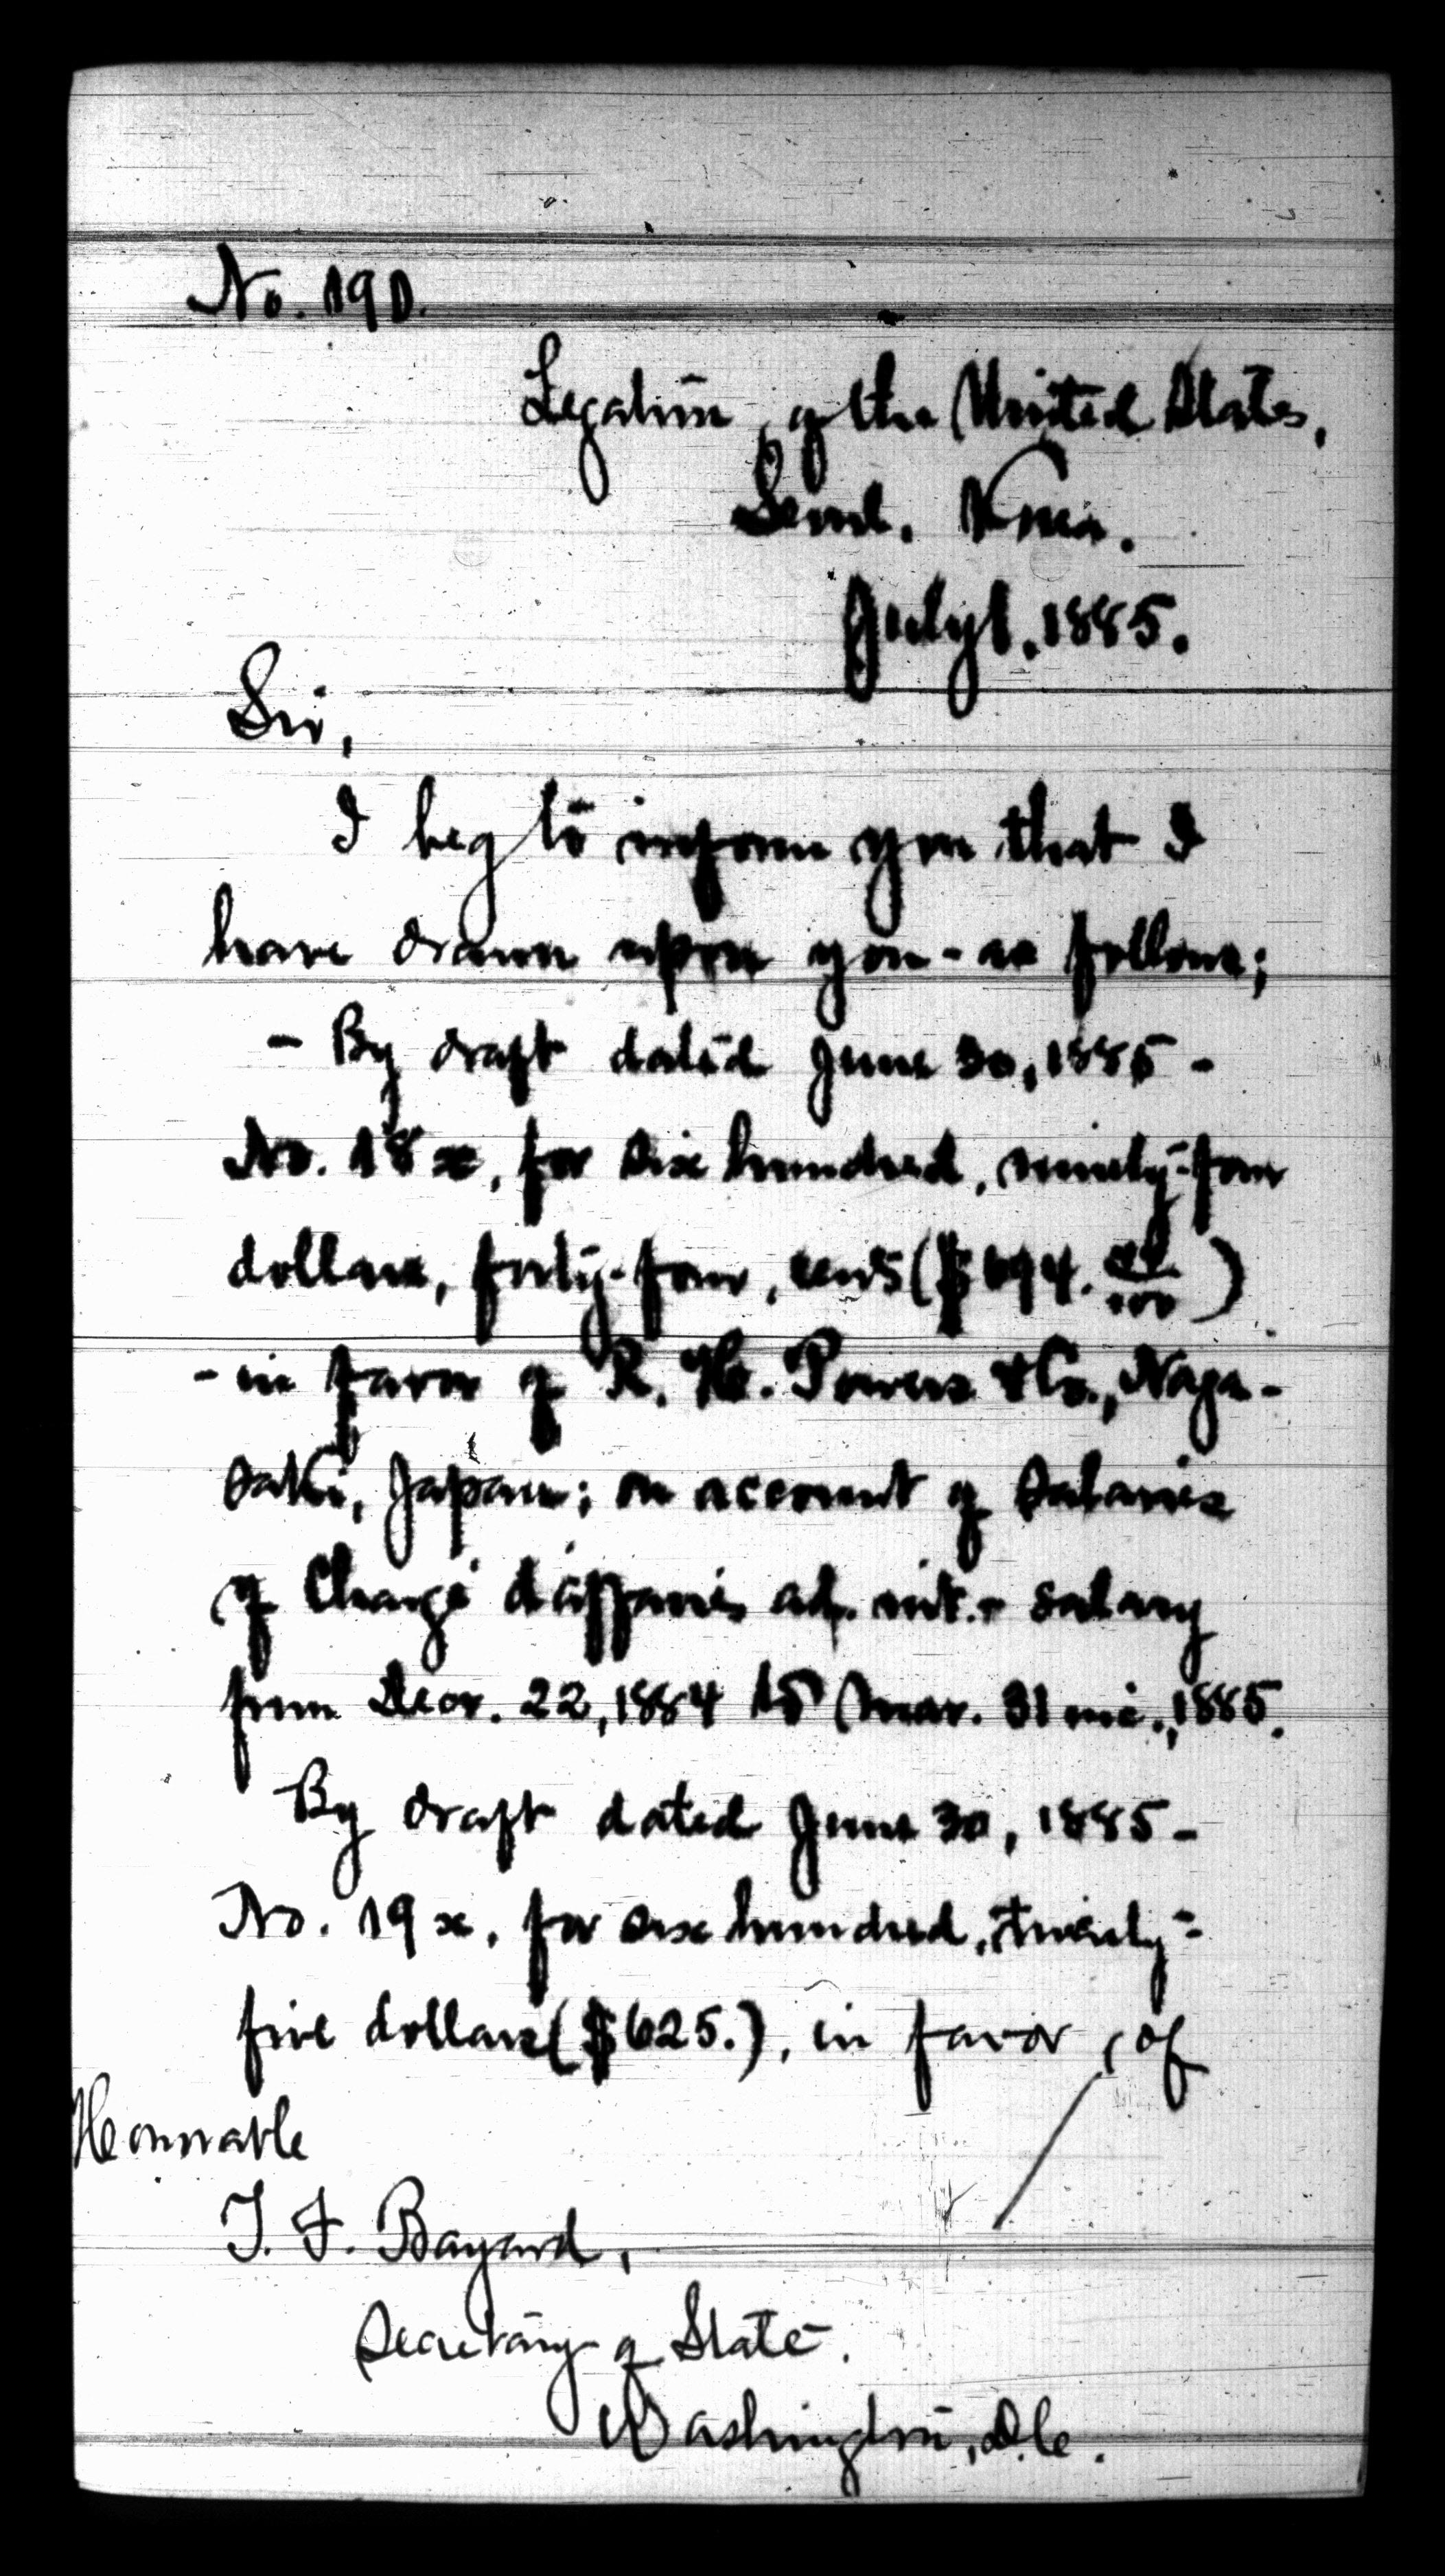 No. 190.
Legation of the United States,
Seoul. Korea.
July 1. 1885.
Sir,
I beg to inform you that I
have drawn upon you - as follows;
- By draft dated June 30, 1885 -
No. 18x, for six hundred, ninety-four
dollars, forty-four, cents ($694. 44/100)
- in favor of R. H. Powers & Co., Naga-
saki, Japan; on account of salaries
of Chargé d'affaires ad. int. - salary
from Decr. 22, 1884 to Mar. 31 inc., 1885.
By draft dated June 30, 1885 -
No. 19x, for six hundred, twenty-
five dollars ($625.), in favor, of
Honorable
T. F. Bayard,
Secretary of State.
Washington, D.C.